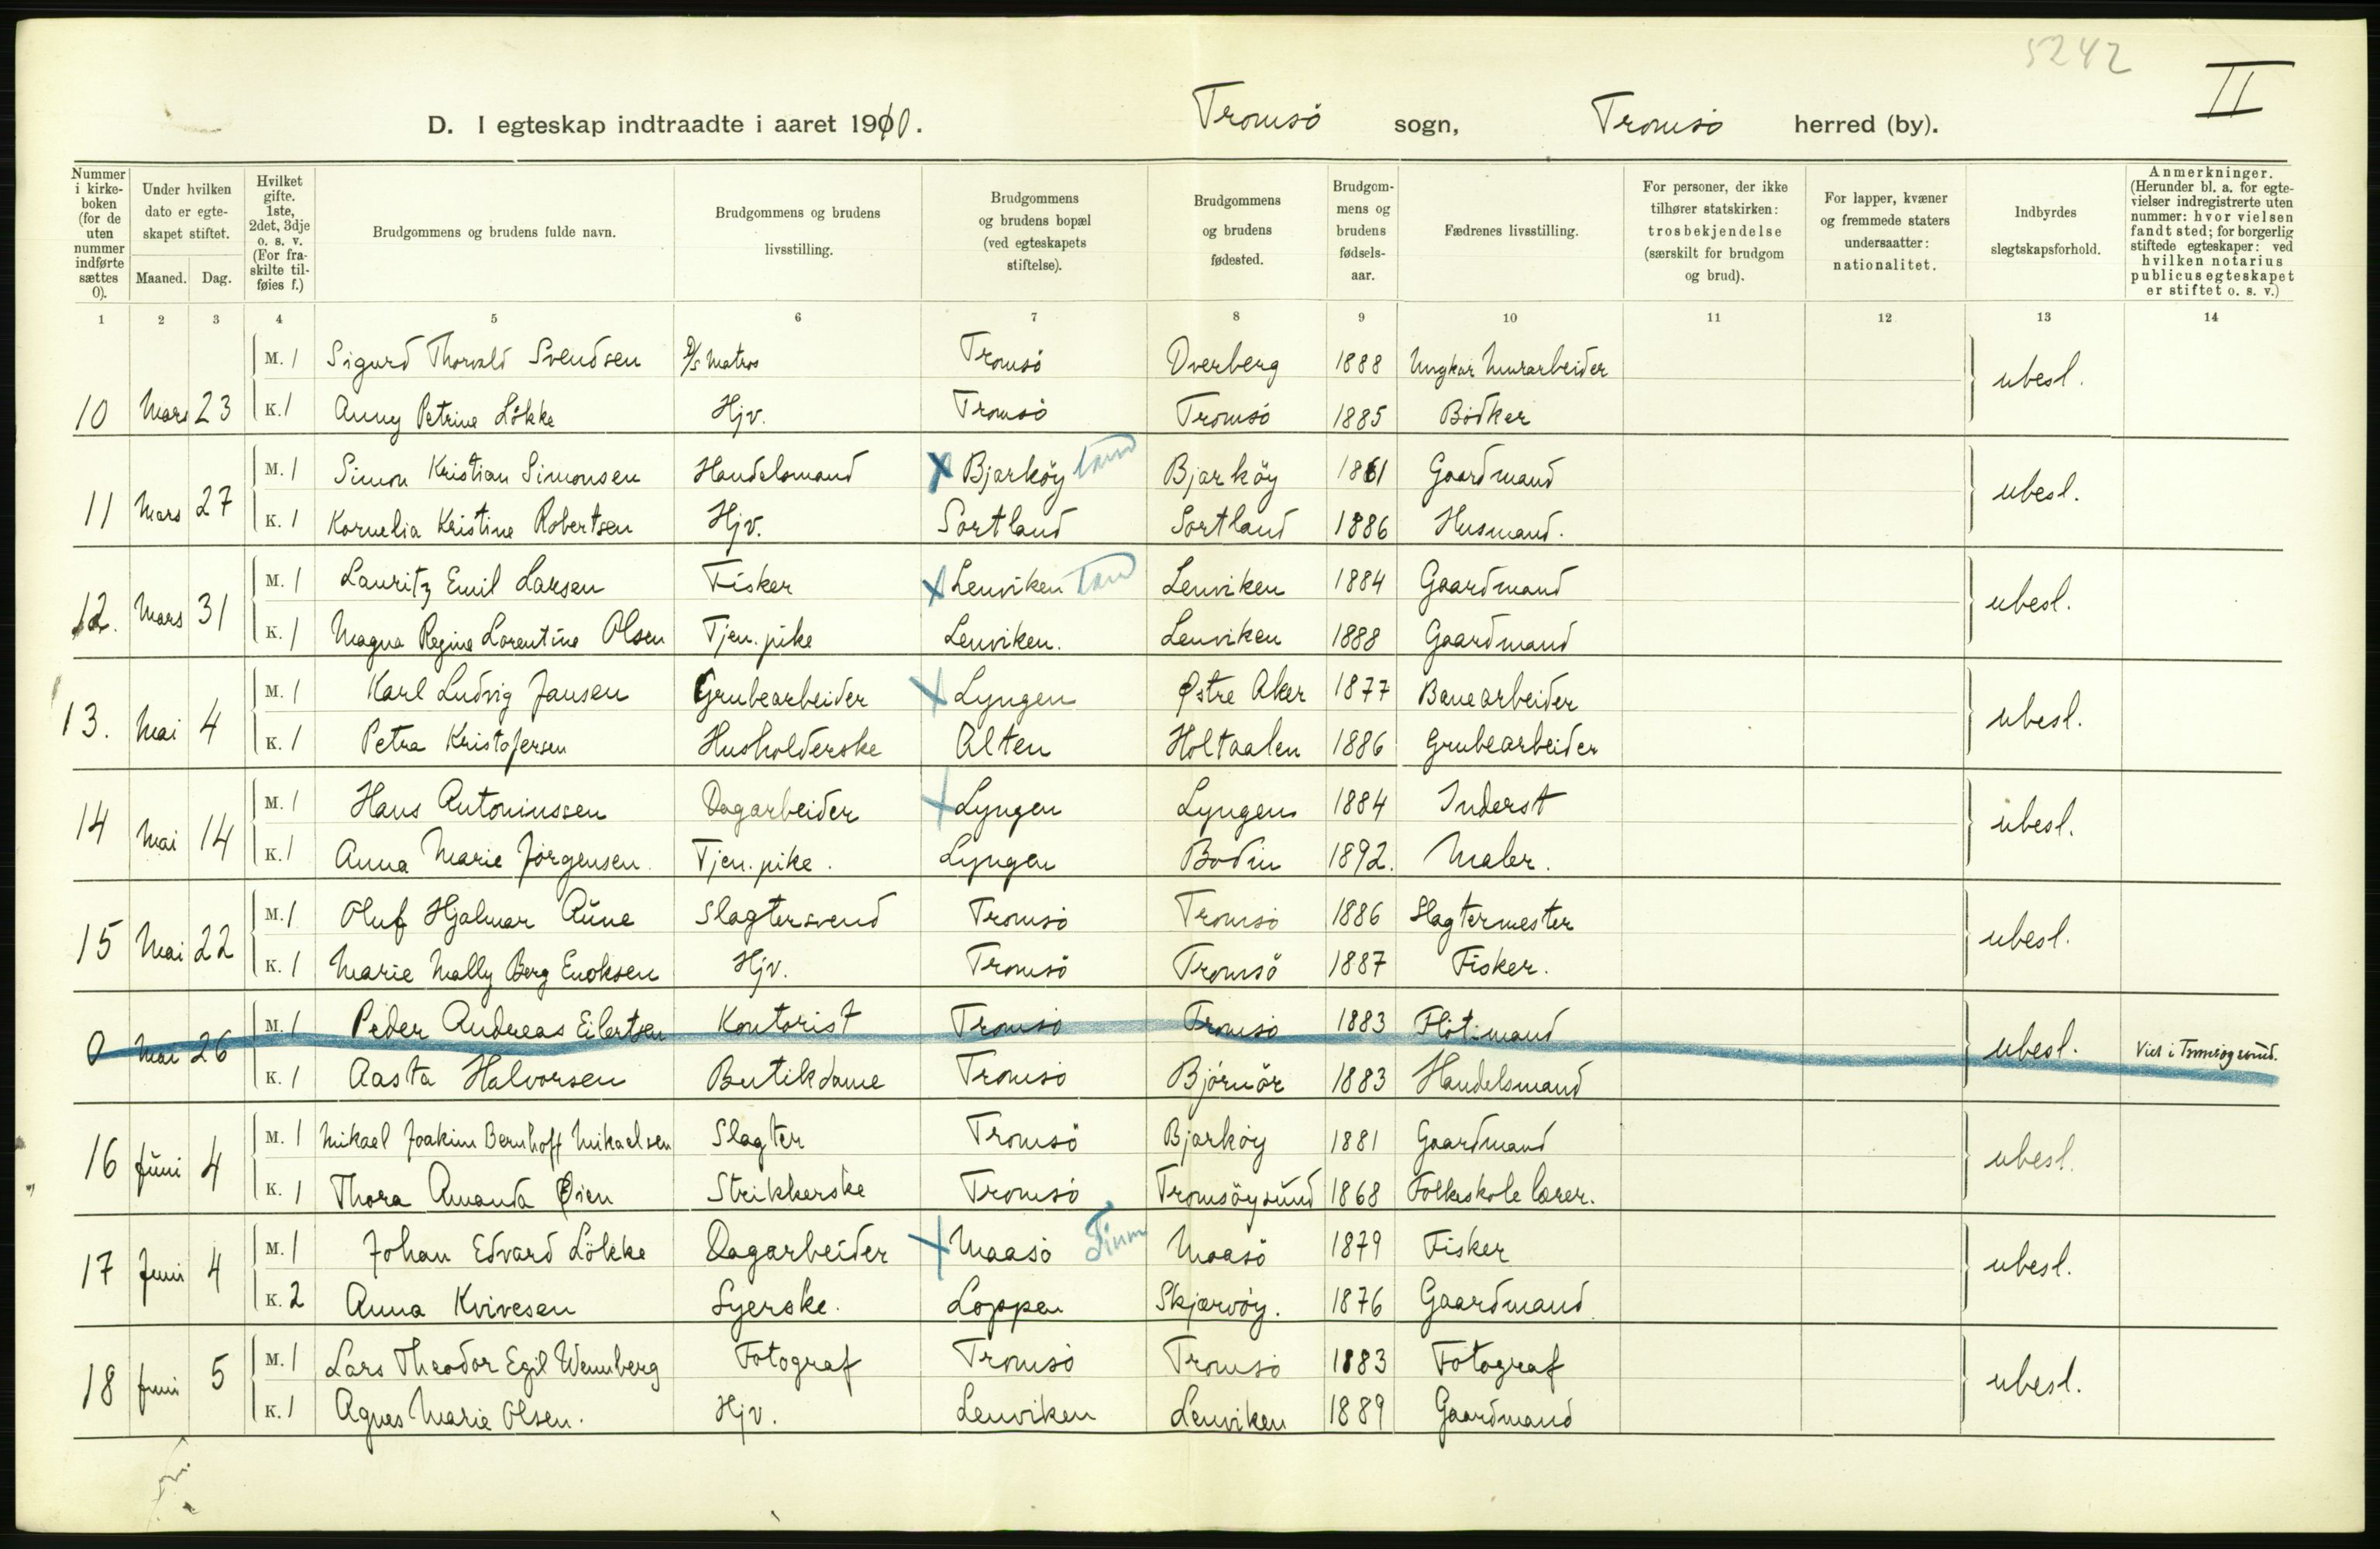 5242
II
D. I egteskap indtraadte i aaret 1910. Tromsö sogn, Tromsö herred (by).
Nummer i kirke-boken (for de uten nummer indførte sættes 0).
Under hvilken dato er egte-skapet stiftet.
Maaned. Dag.
Hvilket gifte. 1ste, 2det, 3dje o. s. v. (For fra-skilte til-føies f.)
Brudgommens og brudens fulde navn.
Brudgommens og brudens livsstilling.
Brudgommens og brudens bopæl (ved egteskapets stiftelse).
Brudgommens og brudens fødested.
Brudgom-mens og brudens fødsels-aar.
Fædrenes livsstilling.
For personer, der ikke tilhører statskirken: trosbekjendelse (særskilt for brudgom og brud).
For lapper, kvæner og fremmede staters undersaatter: nationalitet.
Indbyrdes slegtskapsforhold.
Anmerkninger. (Herunder bl. a. for egte-vielser indregistrerte uten nummer: hvor vielsen fandt sted; for borgerlig stiftede egteskaper: ved hvilken notarius publicus egteskapet er stiftet o. s. v.)
1 2 3 4 5 6 7 8 9 10 11 12 13 14
M. 1 Sigurd Thorvald Svendsen D/s Matros Tromsö Dverberg 1888 Ungkar Murarbeider ubesl.
10 Mars 23 K. 1 Anny Petrine Lökke Hjv. Tromsö Tromsö 1885 Bödker
M. 1 Simon Kristian Simonsen Handelsmand X Bjarköy land Bjarköy 1861 Gaardmand ubesl.
11 Mars 27 K. 1 Kornelia Kristine Robertsen Hjv. Sortland Sortland 1886 Husmand.
M. 1 Lauritz Emil Larsen Fisker X Lenviken land Lenviken 1884 Gaardmand ubesl.
12. Mars 31 K. 1 Magna Regine Lorentine Olsen Tjen. pike Lenviken. Lenviken 1888 Gaardmand
M. 1 Karl Ludvig Jansen Grubearbeider X Lyngen Østre Aker 1877 Banearbeider ubesl.
13. Mai 4 K. 1 Petra Kristofersen Husholderske Alten Holtaalen 1886 Grubearbeider
M. 1 Hans Antoniussen Dagarbeider X Lyngen Lyngen 1884 Inderst ubesl.
14 Mai 14 K. 1 Anna Marie Jörgensen. Tjen. pike. Lyngen Bodin 1892. Maler.
M. 1 Oluf Hjalmar Aune Slagtersvend Tromsö Tromsö 1886 Slagtermester ubesl.
15 Mai 22 K. 1 Marie Mally Berg Enoksen Hjv. Tromsö Tromsö 1887 Fisker.
M. 1 Peder Andreas Eilertsen Kontorist Tromsö Tromsö 1883 Flötmand ubesl. Viet i Tromsøysund.
0 Mai 26 K. 1 Aasta Halvorsen Butikdame Tromsö Björnör 1883 Handelsmand
M. 1 Mikael Joakim Bernhoff Mikaelsen Slagter Tromsö Bjarköy 1881 Gaardmand ubesl.
16 Juni 4 K. 1 Thora Amanda Øien Strikkerske Tromsö Tromsöysund 1868 Folkeskolelærer.
M. 1 Johan Edvard Lökke Dagarbeider X Maasö Finm Maasö 1879 Fisker ubesl.
17 Juni 4 K. 2 Anna Kvivesen Syerske. Loppen Skjærvöy. 1876 Gaardmand
M. 1 Lars Theodor Egil Wennberg Fotograf Tromsö Tromsö 1883 Fotograf ubesl.
18 Juni 5 K. 1 Agnes Marie Olsen. Hjv. Lenviken Lenviken 1889 Gaardmand